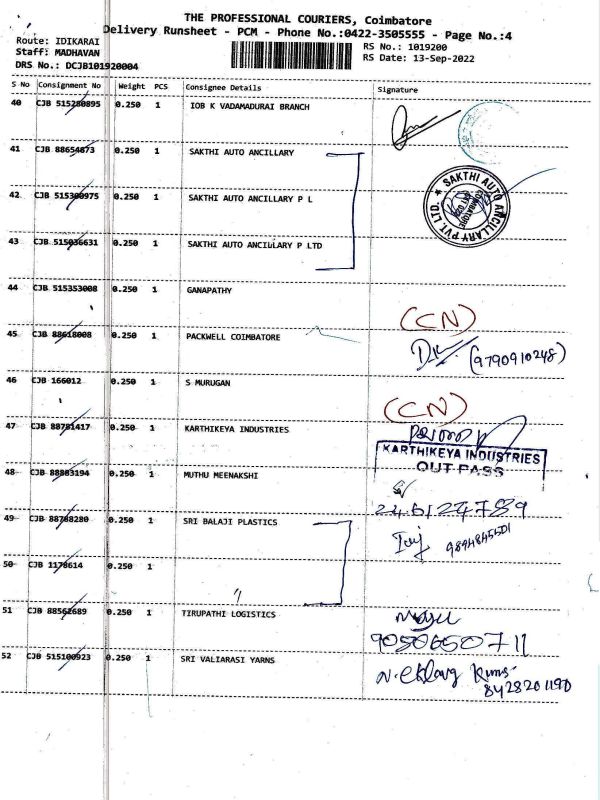 THE PROFESSIONAL COURIERS, Coimbatore
Delivery Runsheet - PCM - Phone No.:0422-3505555 - Page No.:4
Route: IDIKARAI
Staff: MADHAVAN
DRS No.: DCJB101920004
RS No.: 1019200
RS Date: 13-Sep-2022
S No Consignment No Weight PCS Consignee Details Signature
40 CJB 515280895 0.250 1 IOB K VADAMADURAI BRANCH
41 CJB 88654873 0.250 1 SAKTHI AUTO ANCILLARY
42 CJB 515300975 0.250 1 SAKTHI AUTO ANCILLARY P L
SAKTHI AUTO ANCILLARY PVT. LTD.
COIMBATORE
43 CJB 515036631 0.250 1 SAKTHI AUTO ANCILLARY P LTD
44 CJB 515353008 0.250 1 GANAPATHY
(CN)
45 CJB 88618008 0.250 1 PACKWELL COIMBATORE
(9790910248)
46 CJB 166012 0.250 1 S MURUGAN
(CN)
47 CJB 88781417 0.250 1 KARTHIKEYA INDUSTRIES
KARTHIKEYA INDUSTRIES
OUT PASS
48 CJB 88883194 0.250 1 MUTHU MEENAKSHI
49 CJB 88788280 0.250 1 SRI BALAJI PLASTICS
50 CJB 1178614 0.250 1 "
51 CJB 88562689 0.250 1 TIRUPATHI LOGISTICS
9050650711
52 CJB 515100923 0.250 1 SRI VALIARASI YARNS
8428201190